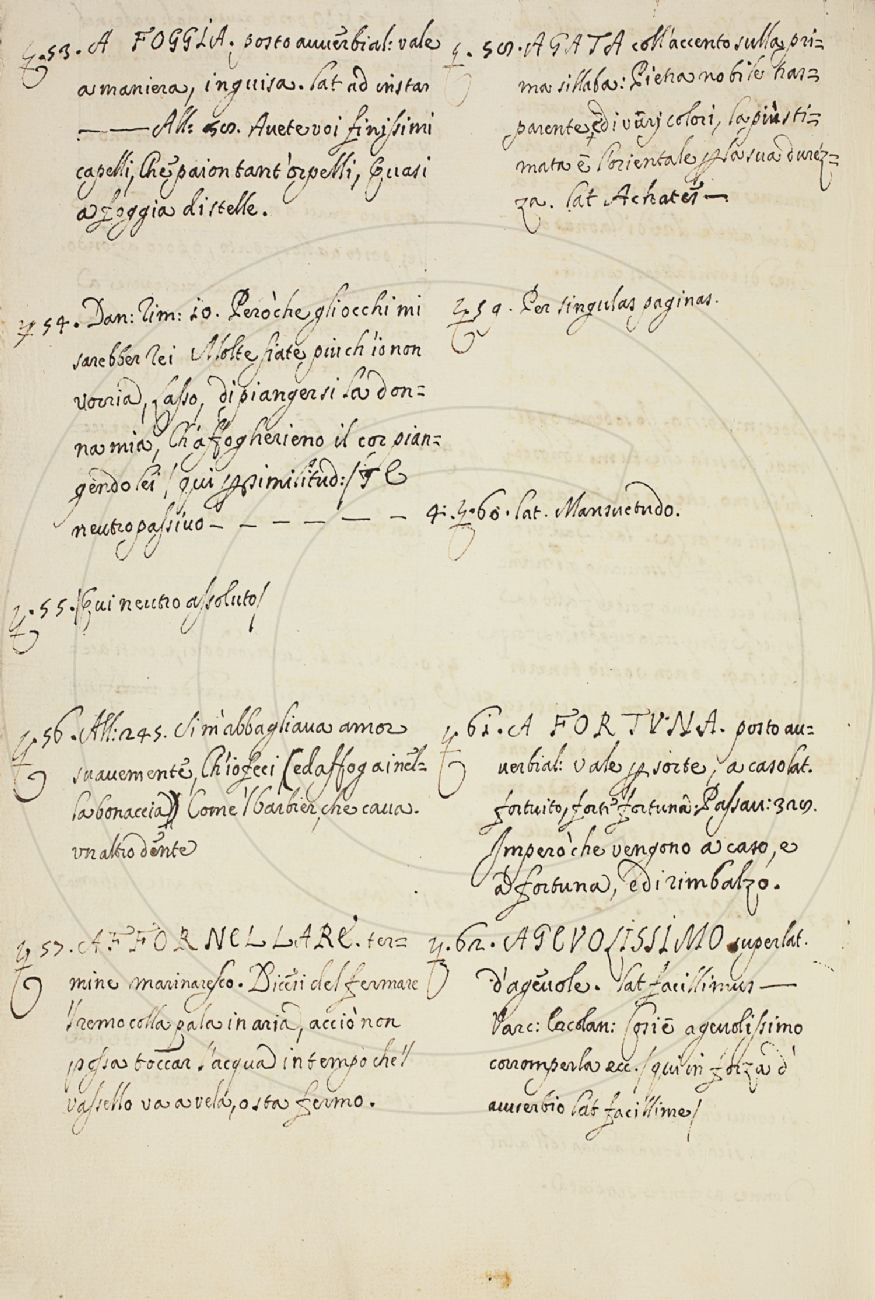 53. A FOGGIA. posto avverbial: vale
a maniera, in guisa. lat ad instar
— — All: 58. Avete voi finissimi
capelli, Che paion tant' orpelli, Quasi
a foggia di stelle.
54. Dan: Rim: 20. Però che gli occhi mi
sarebber rei Molte fiate, più ch'io non
vorria, Lasso, di pianger si la don=
na mia, Ch'affogherieno il cor pian=
gendo lei / qui similitud: /
neutro passivo — — — — — —
55. /Qui neutro assoluto/
56. All: 245. Si m'abbagliava amor
suavemente, Ch'io feci (ed affogai nel=
la bonaccia) Come 'l barbier, che cava.
un altro dente
57. AFFORNELLARE. ter=
mine marinaresco. Dicesi del fermare
'l remo colla pala in aria, acciò non
possa toccar l'acqua in tempo che 'l
vassello va a vela, o sta fermo.
58. AGATA coll' accento sulla pri=
ma sillaba: Pietra nobile tras=
parente, e di varj colori, la più sti=
mata è l'orientale p la sua durez=
za. lat Achates —
59. Per singulas paginas.
4: 60. lat. Mansuetudo.
61. A FORTUNA. posto av=
verbial: vale p sorte, a caso lat.
fortuito, forte fortuna: Passav: 328.
Imperò che vengono a caso, e
a fortuna, e di rimbalzo.
62. AGEVOLISSIMO superlat.
d'agevole. lat facillimus —
Varc: Ercolan: Così è agevolissimo
corromperla ecc. / qui in forza d'
avverbio lat facillime/